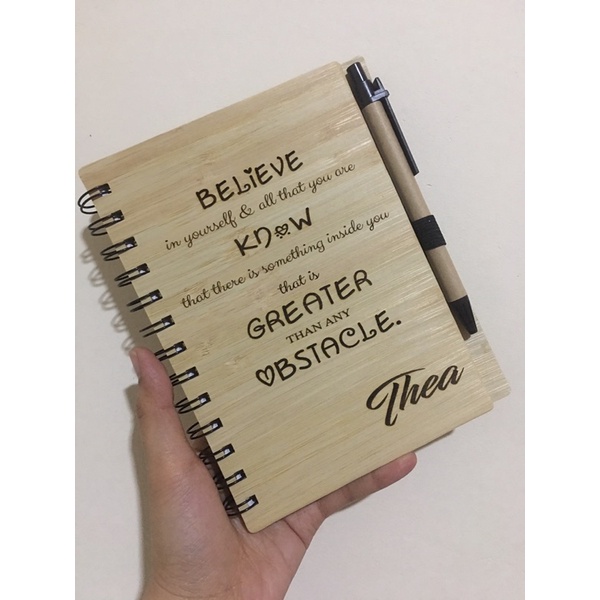 BELiEVE
in yourself & all that you are
KNOW
that there is something inside you
that is
GREATER
THAN ANY
OBSTACLE.
Thea